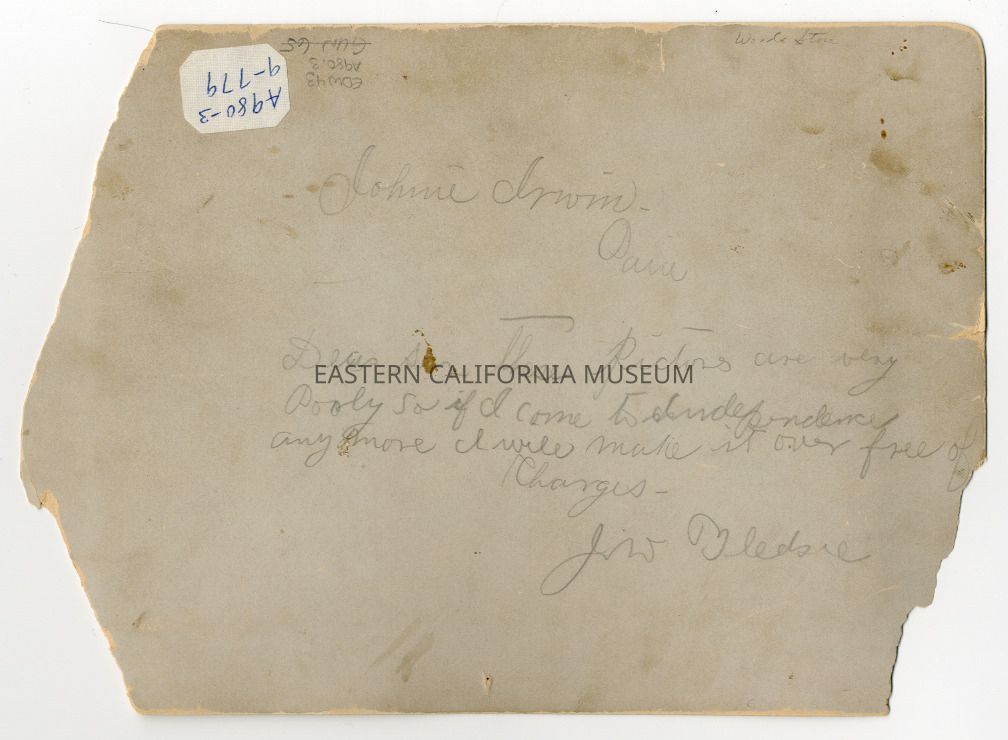 Woods Store
GUN 65
A980.3
EOW43
A980-3
9-779
Johnie Irwin-
Paid
Dear Sir Thes Pictors are very
EASTERN CALIFORNIA MUSEUM
Pooly So if I come to Independence
any more I will make it over free of
Charges-
J W Bledsoe